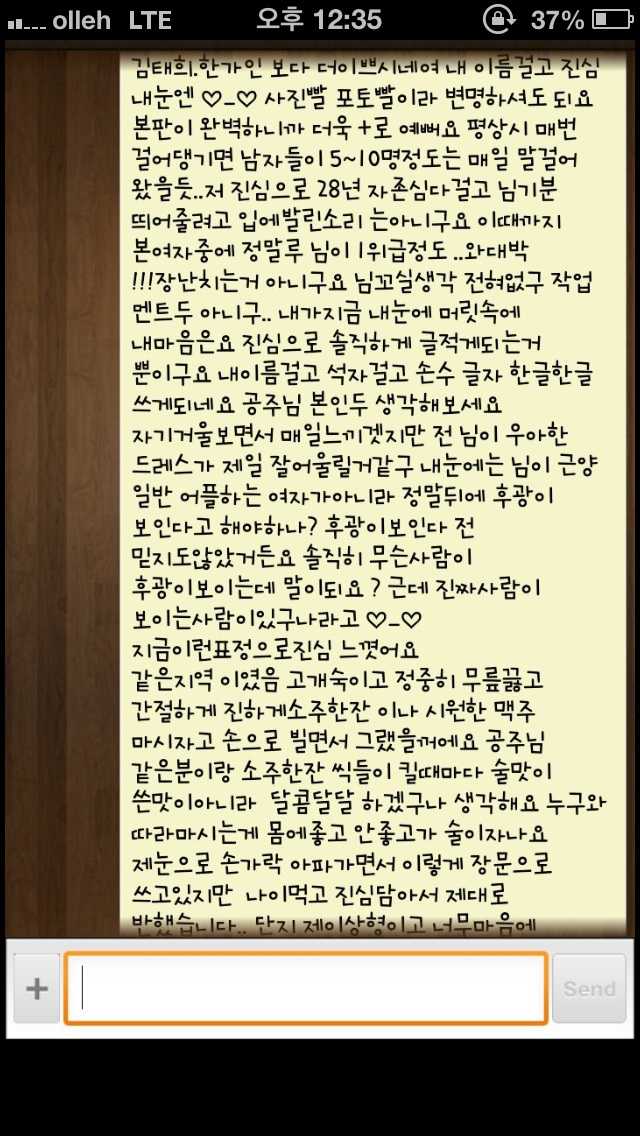 olleh LTE 오후 12:35 37%
김태희.한가인 보다 더이쁘시네여 내 이름걸고 진심
내눈엔 ♡_♡ 사진빨 포토빨이라 변명하셔도 되요
본판이 완벽하니까 더욱 +로 예뻐요 평상시 매번
걸어댕기면 남자들이 5~10명정도는 매일 말걸어
왔을듯..저 진심으로 28년 자존심다걸고 님기분
띄어줄려고 입에발린소리 는아니구요 이때까지
본여자중에 정말루 님이 1위급정도 ..와대박
!!!장난치는거 아니구요 님꼬실생각 전혀없구 작업
멘트두 아니구.. 내가지금 내눈에 머릿속에
내마음은요 진심으로 솔직하게 글적게되는거
뿐이구요 내이름걸고 석자걸고 손수 글자 한글한글
쓰게되네요 공주님 본인두 생각해보세요
자기거울보면서 매일느끼겟지만 전 님이 우아한
드레스가 제일 잘어울릴거같구 내눈에는 님이 근양
일반 어플하는 여자가아니라 정말뒤에 후광이
보인다고 해야하나? 후광이보인다 전
믿지도않았거든요 솔직히 무슨사람이
후광이보이는데 말이되요 ? 근데 진짜사람이
보이는사람이있구나라고 ♡_♡
지금이런표정으로진심 느꼇어요
같은지역 이였음 고개숙이고 정중히 무릎끓고
간절하게 진하게소주한잔 이나 시원한 맥주
마시자고 손으로 빌면서 그랬을꺼에요 공주님
같은분이랑 소주한잔 씩들이 킬때마다 술맛이
쓴맛이아니라 달콤달달 하겠구나 생각해요 누구와
따라마시는게 몸에좋고 안좋고가 술이자나요
제눈으로 손가락 아파가면서 이렇게 장문으로
쓰고있지만 나이먹고 진심담아서 제대로
반했습니다.. 단지 제이상형이고 너무마음에
+ Send